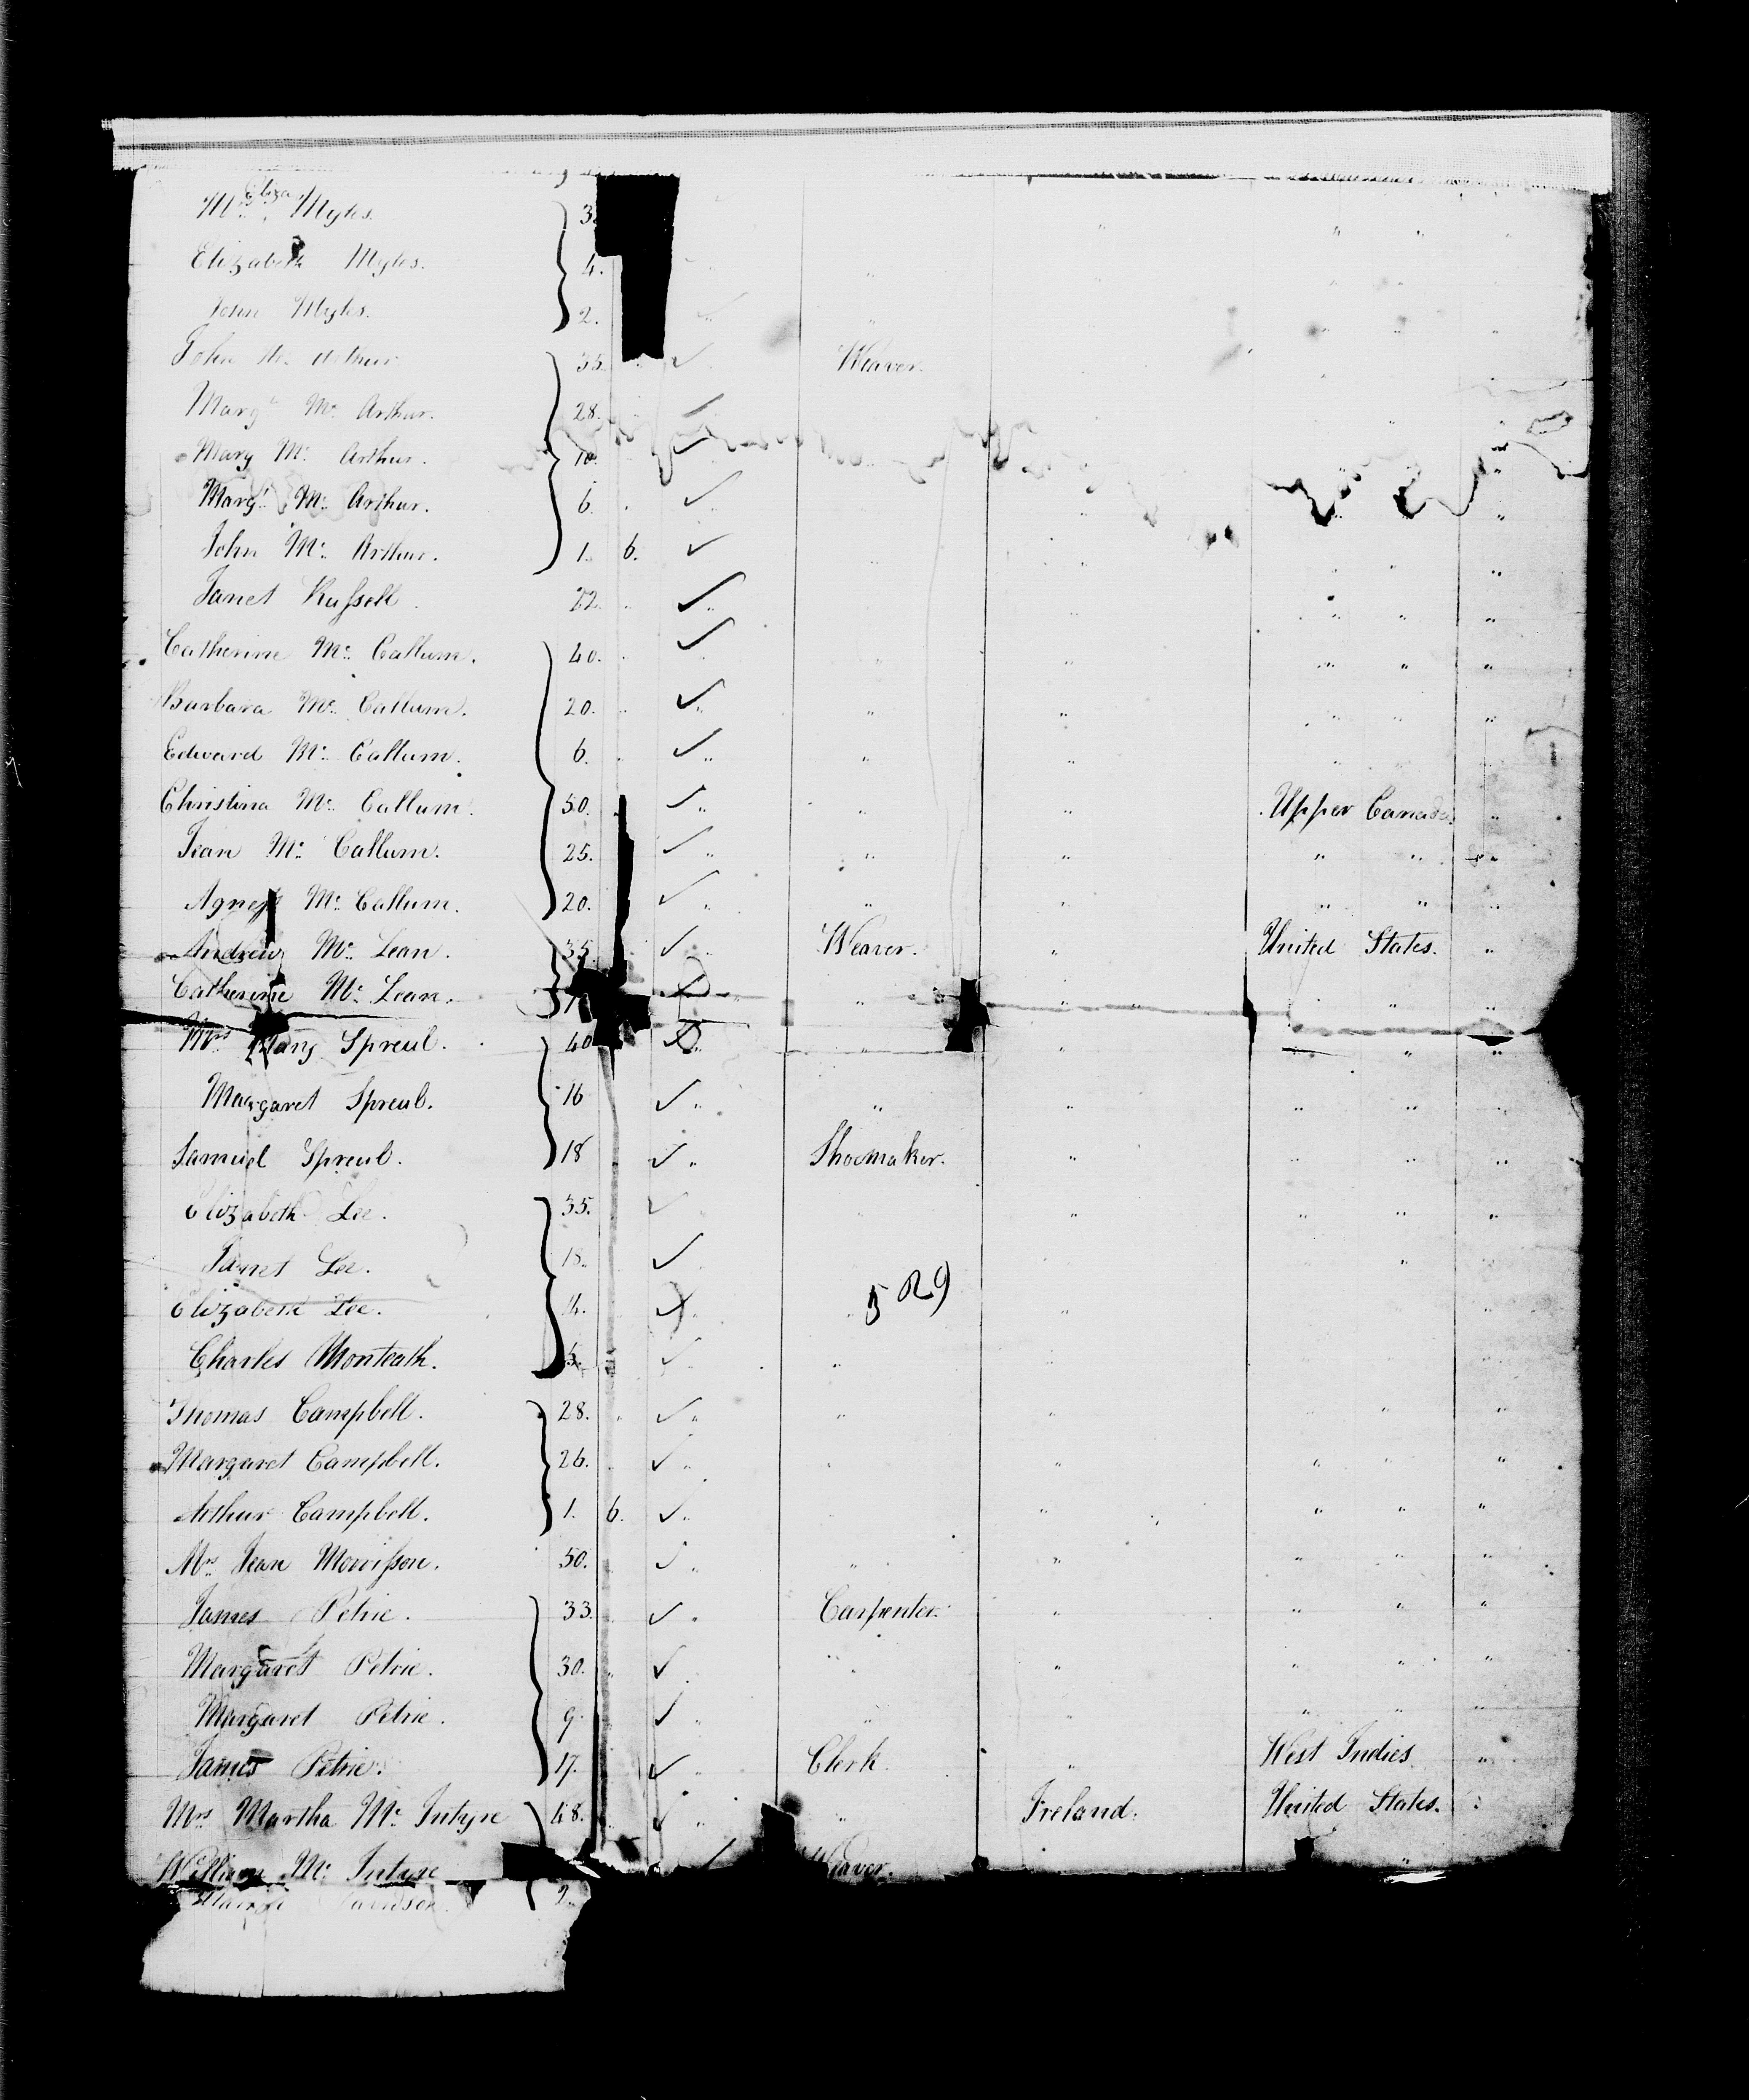 Mrs Eliza Myles. 3
Elizabeth Myles. 4.
John Myles. 2.
John Mc Arthur 35. Weaver.
Margt Mc Arthur. 28.
Mary Mc Arthur. 10.
Margt Mc Arthur. 6.
John Mc Arthur. 1. 6.
Janet Russell 22.
Catherine Mc Callum. 40.
Barbara Mc Callum. 20.
Edward Mc Callum. 6.
Christina Mc Callum. 50. Upper Canada.
Jean Mc Callum. 25. " "
Agness Mc Callum. 20. " "
Andrew Mc Lean. 35. Weaver. " United States. "
Catherine Mc Lean.
Mrs Mary Spreul. 40
Margaret Spreul. 16
Samuel Spreul. 18 Shoemaker.
Elizabeth Lee. 35.
Janet Lee. 18.
529
Elizabeth Lee. 14.
Charles Monteath. 5.
Thomas Campbell. 28.
Margaret Campbell. 26.
Arthur Campbell. 1. 6.
Mrs Jean Morrisson. 50.
James Petrie. 33. Carpenter.
Margaret Petrie. 30.
Margaret Petrie. 9.
James Petrie. 17. Clerk. " West Indies. "
Mrs Martha Mc Intyre 48. " Ireland. United States.
William Mc Intyre Weaver.
2.